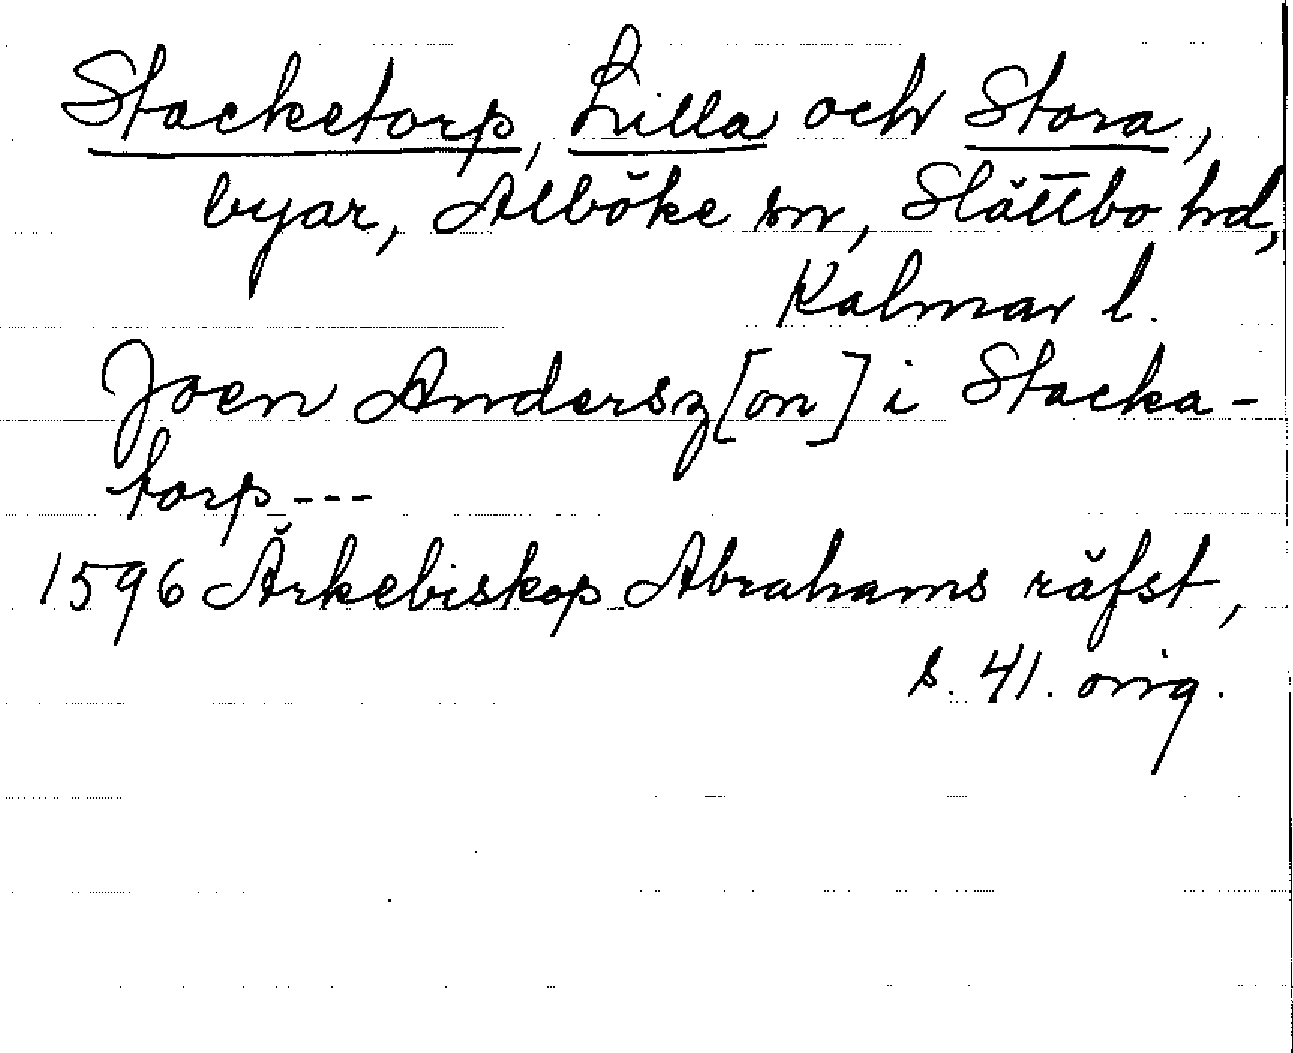 Stacketorp, Lilla och Stora,
byar, Alböke sn, Slättbo hd,
Kalmar l.
Joen Andersz[on] i Stacka-
torp ---
1596 Ärkebiskop Abrahams räfst,
s. 41. orig.